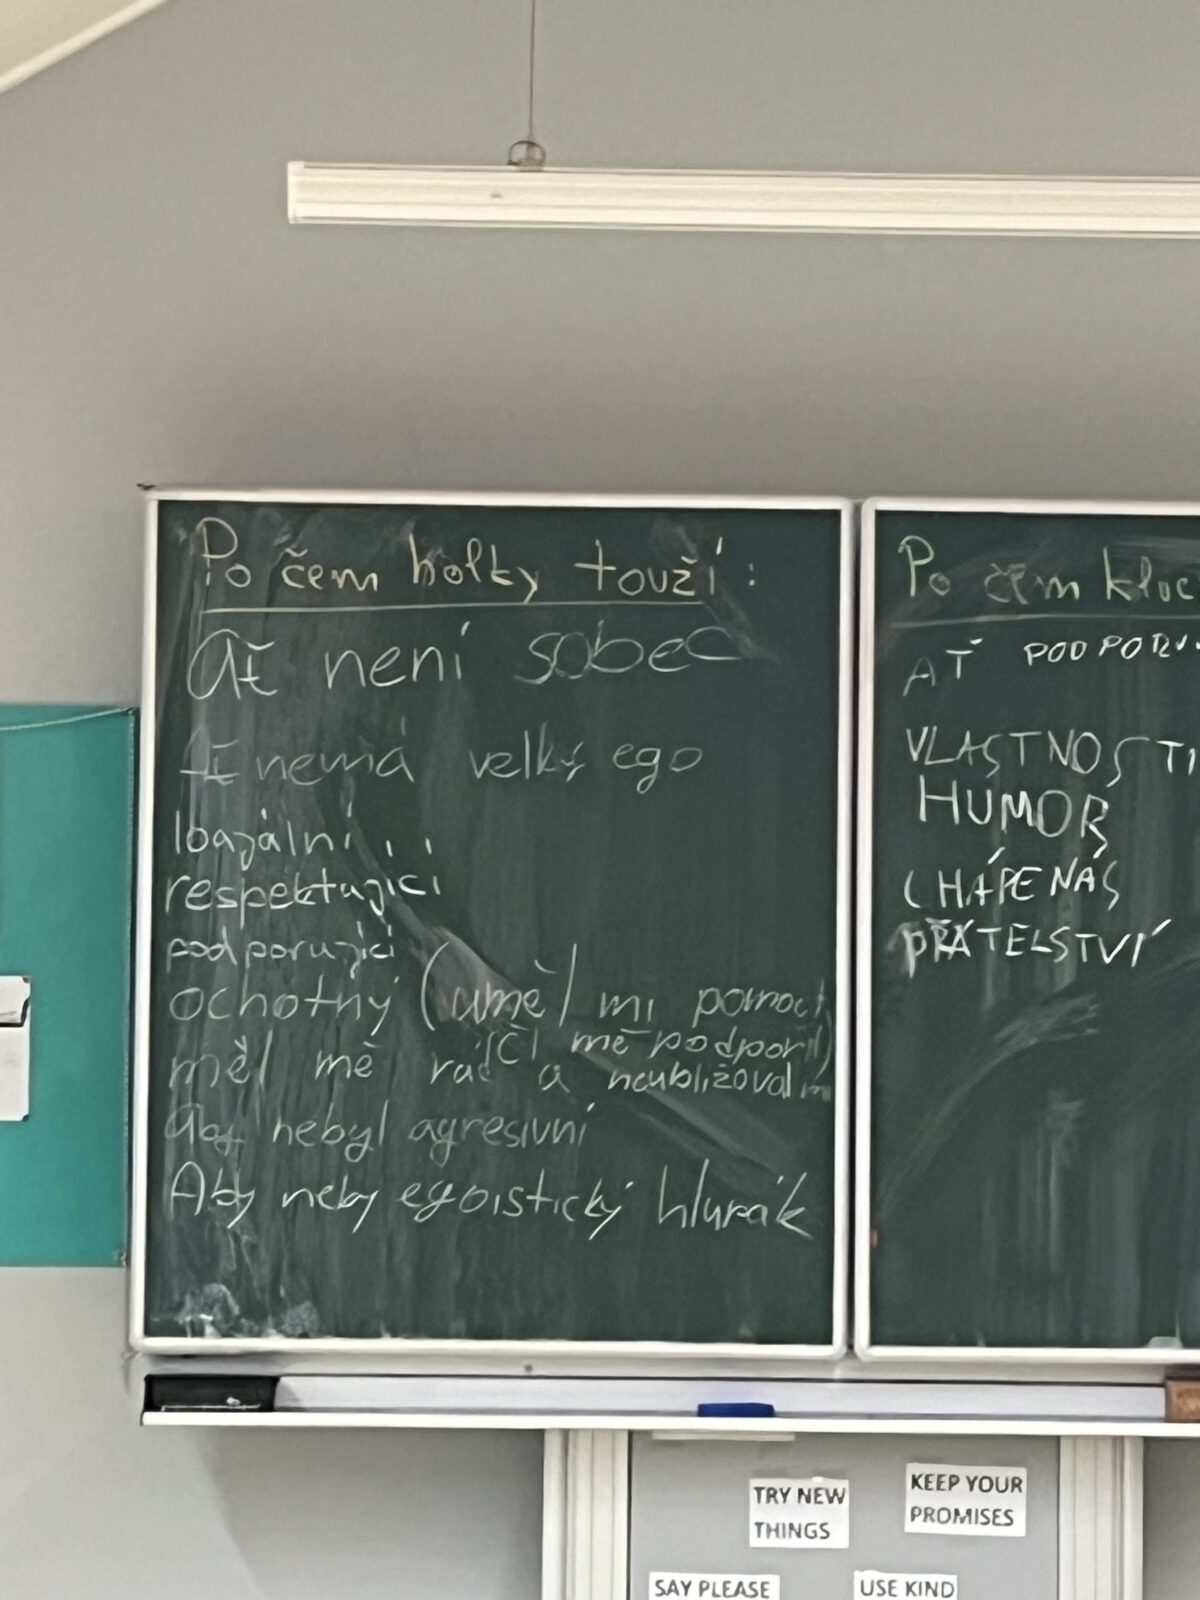 Po čem holky touží:
Ať není sobec
Ať nemá velký ego
loajální
respektující
podporující
ochotný (uměl mi pomoct,
měl mě rád a neubližoval
mě podpořil)
Aby nebyl agresivní
Aby neby egoistický hlupák
Po čem kluc
AŤ PODPORU
VLASTNOSTI
HUMOR
CHÁPE NÁS
PŘÁTELSTVÍ
TRY NEW
THINGS
KEEP YOUR
PROMISES
SAY PLEASE
USE KIND